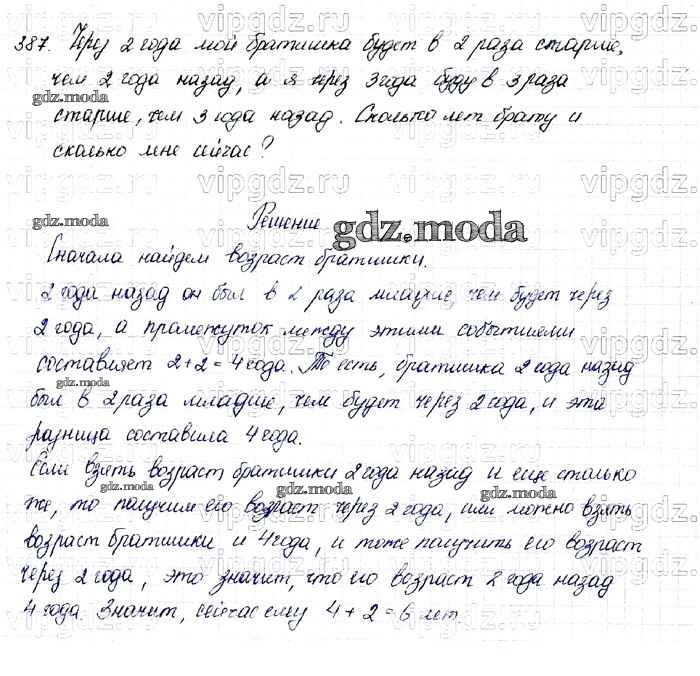 387. Через 2 года мой братишка будет в 2 раза старше,
чем 2 года назад, а я через 3 года буду в 3 раза
gdz.moda
старше, чем 3 года назад. Сколько лет брату и
сколько мне сейчас?
vipgdz.ru vipgdz.ru vipgdz.ru vipgdz.ru
gdz.moda
Решение
gdz.moda
Сначала найдем возраст братишки.
2 года назад он был в 2 раза младше, чем будет через
2 года, а промежуток между этими событиями
составляет 2+2=4 года. То есть, братишка 2 года назад
gdz.moda
был в 2 раза младше, чем будет через 2 года, и эта
разница составила 4 года.
Если взять возраст братишки 2 года назад и еще столько
gdz.moda gdz.moda gdz.moda
же, то получим его возраст через 2 года, или можно взять
возраст братишки и 4 года, и тоже получить его возраст
через 2 года, это значит, что его возраст 2 года назад
4 года. Значит, сейчас ему 4+2=6 лет.
gdz.moda